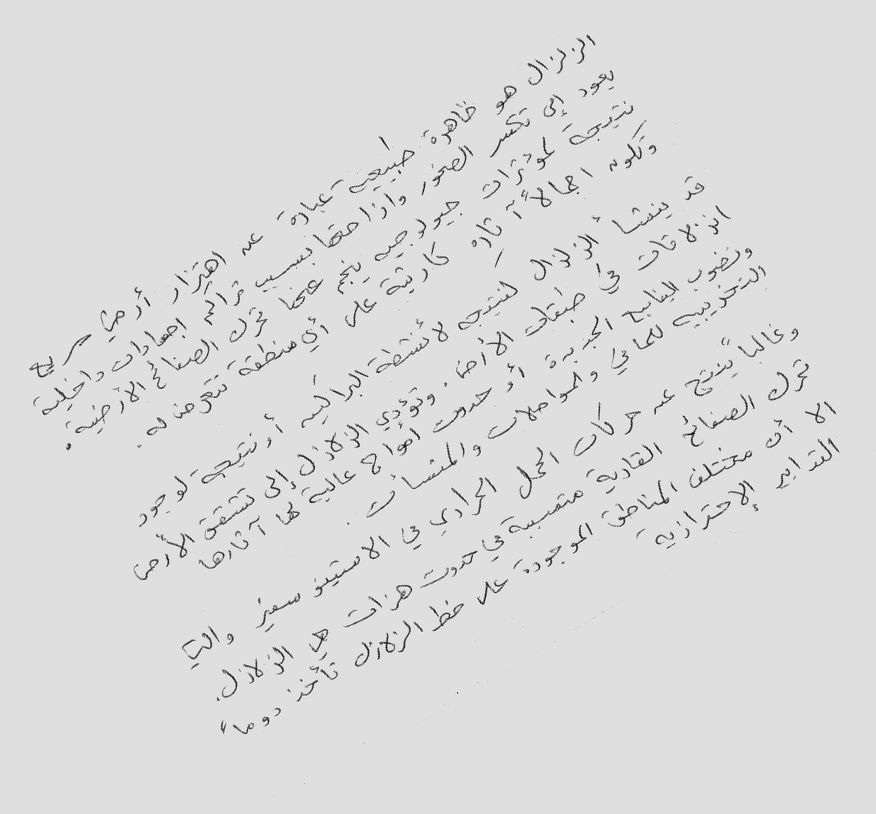 الزلزال هو ظاهرة طبيعية عبارة عن اهتزاز أرضي سريع
يعود إلى تكسر الصخور وازاحتها بسبب تراكم اجهادات داخلية
نتيجة لمؤثرات جيولوجية ينجم عنها تحرك الصفائح الأرضية.
وتكون اجمالاً آثاره كارثية على أي منطقة تتعرض له.
قد ينشأ الزلزال كنتيجة لأنشطة البراكين أو نتيجة لوجود
انزلاقات في طبقات الأرض. وتؤدي الزلازل إلى تشقق الأرض
ونضوب الينابيع الجديدة أو حدوث امواج عالية لها آثارها
التخريبية للمباني والمواصلات والمنشآت.
وغالباً ينتج عن حركات الحمل الحراري في الاستينوسفير والتي
تحرك الصفائح القارية متسببة في حدوث هزات هي الزلازل.
الا أن مختلف المناطق الموجودة على خط الزلازل تأخذ دوماً
التدابير الإحترازية